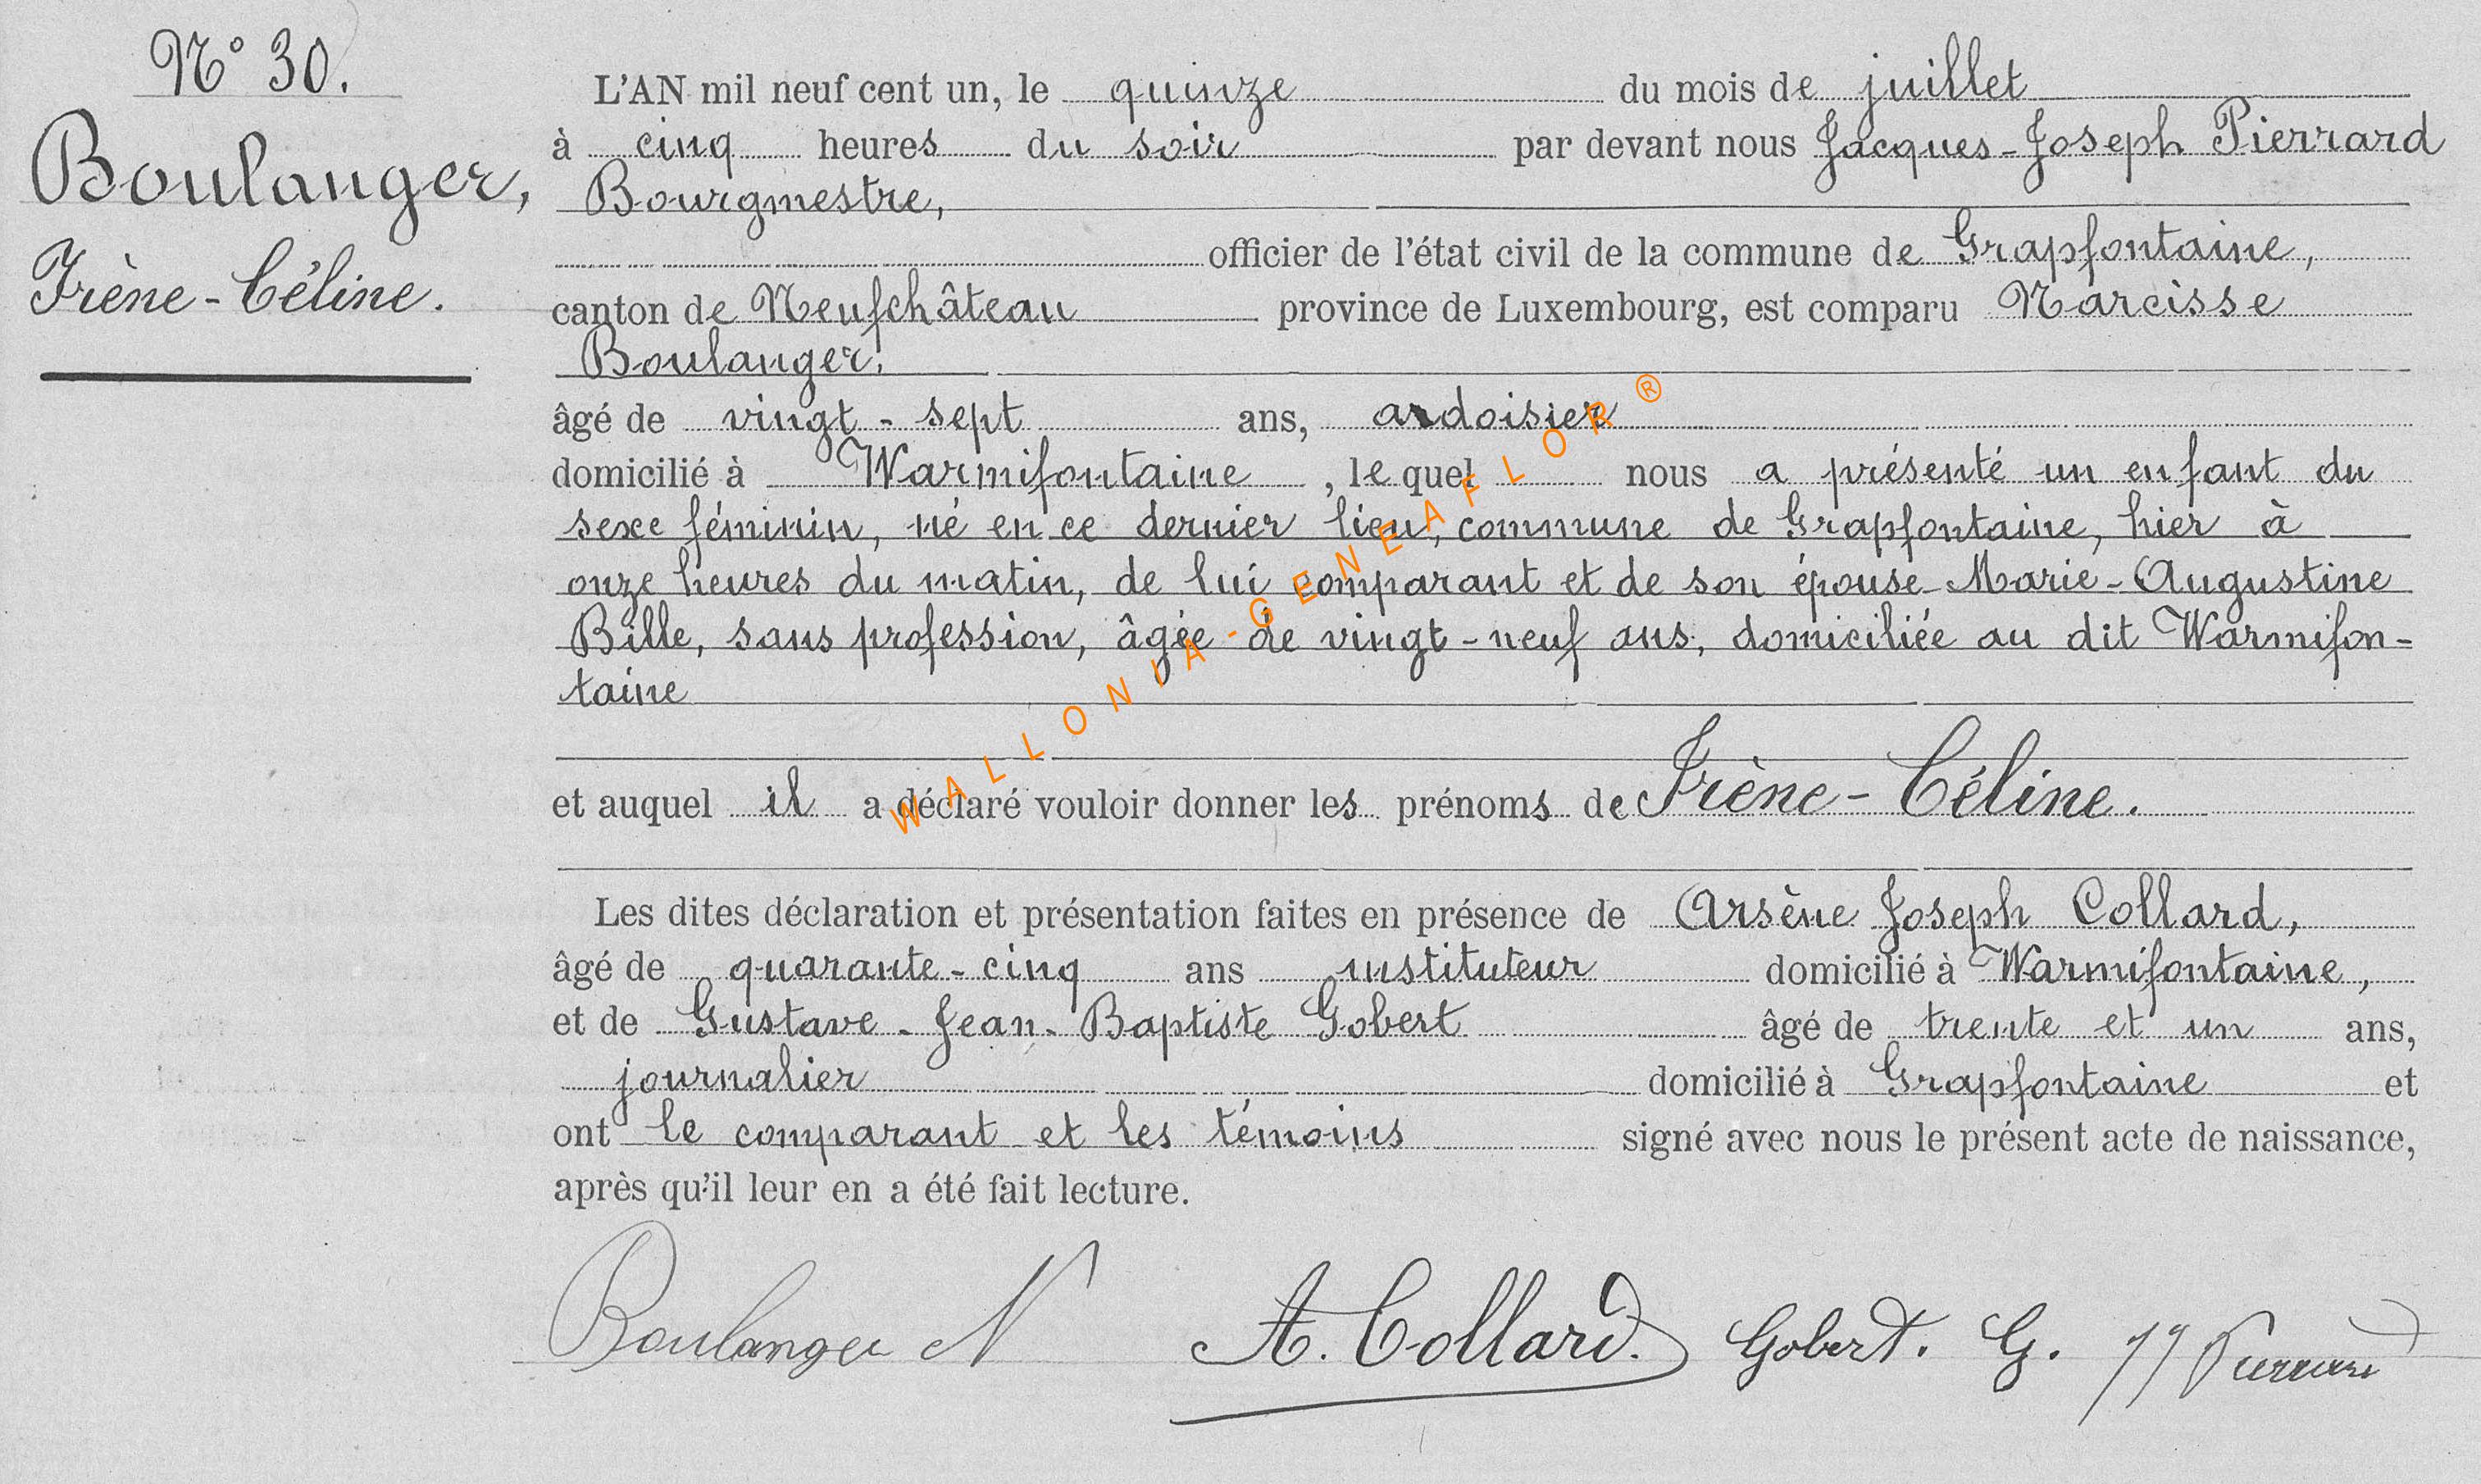 N° 30.
Boulanger,
Irène-Céline.
L'AN mil neuf cent un, le quinze du mois de juillet
à cinq heures du soir par devant nous Jacques-Joseph Pierrard
Bourgmestre,
officier de l'état civil de la commune de Grapfontaine,
canton de Neufchâteau province de Luxembourg, est comparu Narcisse
Boulanger,
âgé de vingt-sept ans, ardoisier
domicilié à Warmifontaine, lequel nous a présenté un enfant du
sexe féminin, né en ce dernier lieu, commune de Grapfontaine, hier à
onze heures du matin, de lui comparant et de son épouse Marie-Augustine
Bille, sans profession, âgée de vingt-neuf ans, domiciliée au dit Warmifon-
taine
et auquel il a déclaré vouloir donner les prénoms de Irène-Céline.
Les dites déclaration et présentation faites en présence de Arsène Joseph Collard,
âgé de quarante-cinq ans instituteur domicilié à Warmifontaine,
et de Gustave-Jean-Baptiste Gobert âgé de trente et un ans,
journalier domicilié à Grapfontaine et
ont le comparant et les témoins signé avec nous le présent acte de naissance,
après qu'il leur en a été fait lecture.
Boulanger N A. Collard. Gobert. G. JJ Pierrard
WALLONIA-GENEAFLOR ®